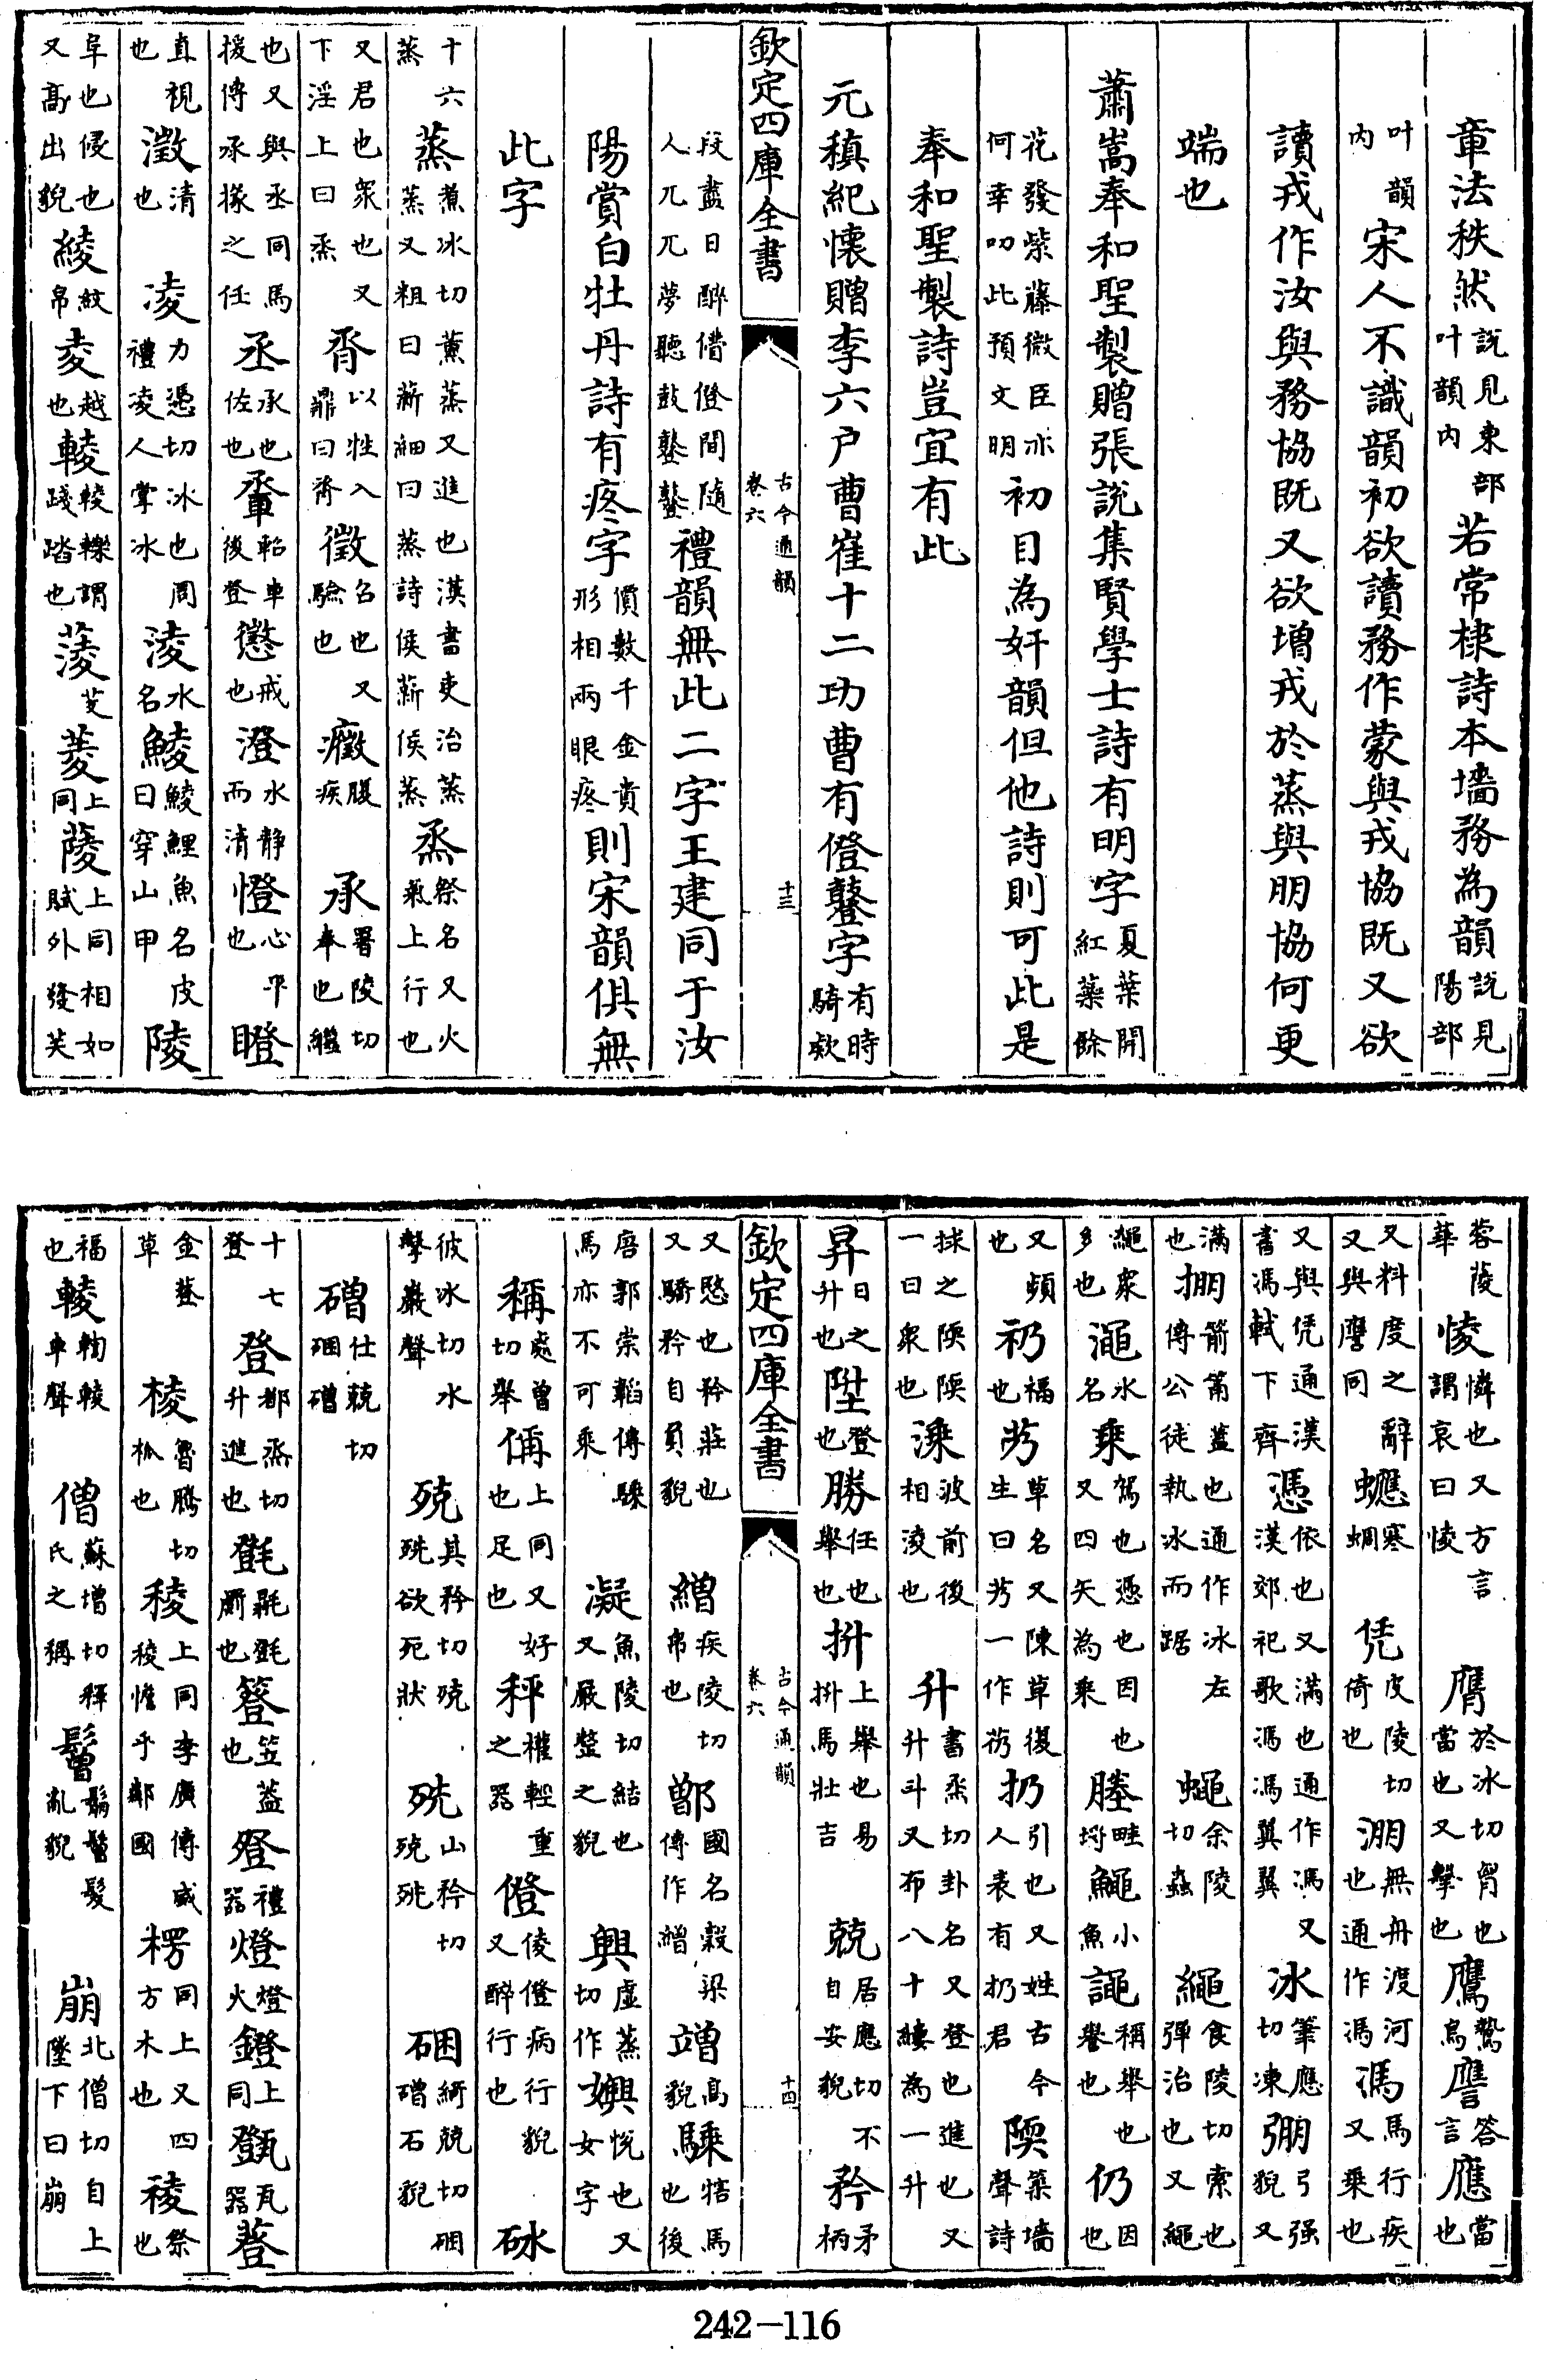 章法秩然說見東部叶韻內若常棣詩本墻務為韻說見陽部
叶韻內宋人不識韻初欲讀務作蒙與戎協既又欲
讀戎作汝與務協既又欲增戎於蒸與朋協何更
端也
蕭嵩奉和聖製贈張說集賢學士詩有明字夏葉開紅藥餘
花發紫藤微臣亦何幸叨此預文明初目為奸韻但他詩則可此是
奉和聖製詩豈宜有此
元稹紀懷贈李六户曹崔十二功曹有僜鼞字有時騎欵
欽定四庫全書 古今通韻卷六 十三
段盡日醉僜僜間隨人兀兀夢聽鼓鼞鼞禮韻無此二字王建同于汝
陽賞白牡丹詩有疼字價數千金貴形相兩眼疼則宋韻俱無
此字
十六蒸蒸煮冰切薰蒸又進也漢書吏治蒸蒸又粗曰薪細曰蒸詩侯薪侯蒸烝祭名又火氣上行也
又君也衆也又下淫上曰烝脀以牲入鼎曰脀徵召也又驗也癥腹疾承署陵切奉也繼
也又與丞同馬援傳承掾之任丞承也佐也𨋬軺車後登懲戒也澄水静而清憕心平也瞪
直視也澂清也凌力憑切冰也周禮凌人掌冰淩水名鯪鯪鯉魚名皮曰穿山甲陵
阜也侵也又高出貌綾紋帛夌越也輘輘轢謂踐踏也蔆芰菱上同䔖上同相如賦外發芙
蓉蔆華㥄憐也又方言謂哀曰㥄膺於冰切胷也當也又擊也鷹鷙鳥譍答言應當也
又料度之辭又與譍同蠯寒蜩凭皮陵切倚也淜無舟渡河也通作馮馮馬行疾又乗也
又與凭通漢書馮軾下齊憑依也又滿也通作馮漢郊祀歌馮馮翼翼又冰筆應切凍弸弓强貌又
滿也掤箭筩蓋也通作冰左傳公徒執冰而踞蠅余陵切蟲繩食陵切索也彈治也又繩
繩衆多也澠水名乗駕也憑也因也又四矢為乗塍畦埒鱦小魚譝稱舉也譽也仍因也
又頻也礽福也艿草名又陳草復生曰艿一作芿扔引也又姓古今人表有扔君陾築墻聲詩
捄之陾陾一曰衆也溗波前後相淩也升書烝切卦名又登也進也又升斗又布八十縷為一升
昇日之升也陞登也勝任也舉也拚上舉也易拚馬壯吉兢居應切不自安貌矜矛柄
欽定四庫全書 古今通韻卷六 十四
又愍也矜莊也又驕矜自負貌繒疾陵切帛也鄫國名穀梁傳作繒竲高貌騬犗馬也後
唐郭崇韜傳騬馬亦不可乘凝魚陵切結也又嚴整之貌興虛蒸切作嬹悅也又女字
稱處曾切舉偁上同又好也足也秤權輕重之器僜倰僜病行貌又醉行也砅
彼冰切水擊巖聲殑其矜切殑殑欲死狀殑山矜切殑殑硱綺兢切硱磳石貌
磳仕兢切硱磳
十七登登都烝切升進也㲪毾㲪罽也簦笠蓋也豋禮器燈燈火鐙上同甑瓦器䔲
金䔲草棱魯騰切枛也稜上同李廣傳威稜憺乎鄰國楞同上又四方木也稜祭
福也輘輷輘車聲僧蘇增切釋氏之稱鬙鬅鬙髮亂貌崩北僧切自上墜下曰崩
242-116